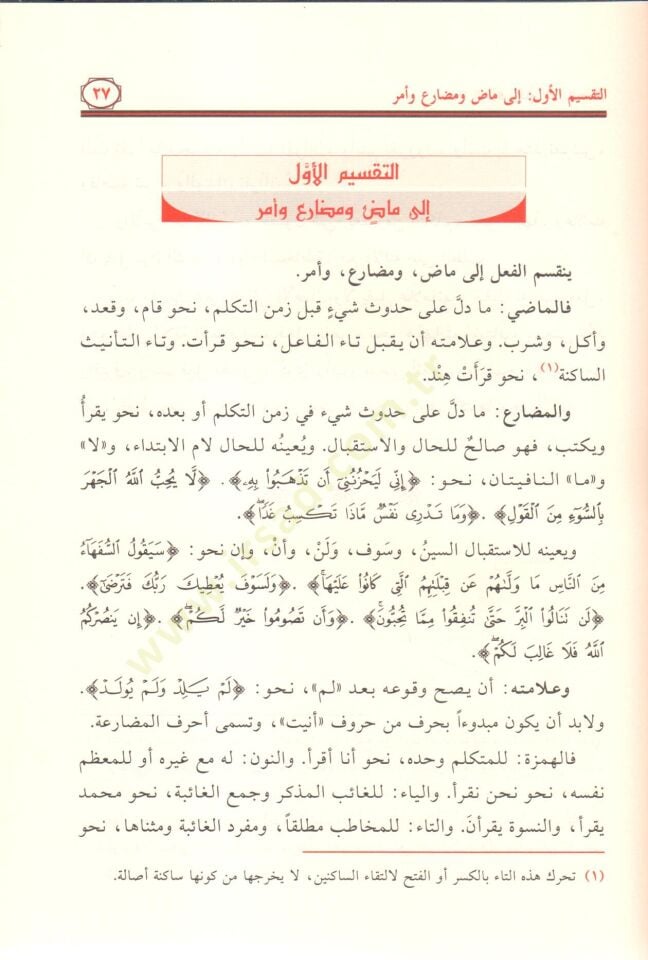 التقسيم الأول: إلى ماض ومضارع وأمر
٢٧
التقسيم الأوَّل
إلى ماضٍ ومضارع وأمر
ينقسم الفعل إلى ماض، ومضارع، وأمر.
فالماضي: ما دلَّ على حدوث شيءٍ قبل زمن التكلم، نحو قام، وقعد،
وأكل، وشرب. وعلامته أن يقبل تاء الفاعل، نحو قرأت. وتاء التأنيث
الساكنة(١)، نحو قرَأَتْ هِنْد.
والمضارع: ما دلَّ على حدوث شيء في زمن التكلم أو بعده، نحو يقرأُ
ويكتب، فهو صالحٌ للحال والاستقبال. ويُعينُه للحال لام الابتداء، و«لا»
و«ما» النافيتان، نحو: ﴿إِنِّي لَيَحْزُنُنِىٓ أَن تَذْهَبُوا۟ بِهِۦ﴾. ﴿لَّا يُحِبُّ ٱللَّهُ ٱلْجَهْرَ
بِٱلسُّوٓءِ مِنَ ٱلْقَوْلِ﴾. ﴿وَمَا تَدْرِى نَفْسٌ مَّاذَا تَكْسِبُ غَدًاۖ﴾.
ويعينه للاستقبال السينُ، وسَوف، ولَنْ، وأنْ، وإن نحو: ﴿سَيَقُولُ ٱلسُّفَهَآءُ
مِنَ ٱلنَّاسِ مَا وَلَّىٰهُمْ عَن قِبْلَتِهِمُ ٱلَّتِى كَانُوا۟ عَلَيْهَاۚ﴾. ﴿وَلَسَوْفَ يُعْطِيكَ رَبُّكَ فَتَرْضَىٰٓ﴾.
﴿لَن تَنَالُوا۟ ٱلْبِرَّ حَتَّىٰ تُنفِقُوا۟ مِمَّا تُحِبُّونَۚ﴾. ﴿وَأَن تَصُومُوا۟ خَيْرٌ لَّكُمْۖ﴾. ﴿إِن يَنصُرْكُمُ
ٱللَّهُ فَلَا غَالِبَ لَكُمْۖ﴾.
وعلامته: أن يصح وقوعه بعد «لم»، نحو: ﴿لَمْ يَلِدْ وَلَمْ يُولَدْ﴾.
ولابد أن يكون مبدوءاً بحرف من حروف «أنيت»، وتسمى أحرف المضارعة.
فالهمزة: للمتكلم وحده، نحو أنا أقرأ. والنون: له مع غيره أو للمعظم
نفسه، نحو نحن نقرأ. والياء: للغائب المذكر وجمع الغائبة، نحو محمد
يقرأ، والنسوة يقرأنَ. والتاء: للمخاطب مطلقاً، ومفرد الغائبة ومثناها، نحو
(١) تحرك هذه التاء بالكسر أو الفتح لالتقاء الساكنين، لا يخرجها من كونها ساكنة أصالة.
www.irsad.com.tr